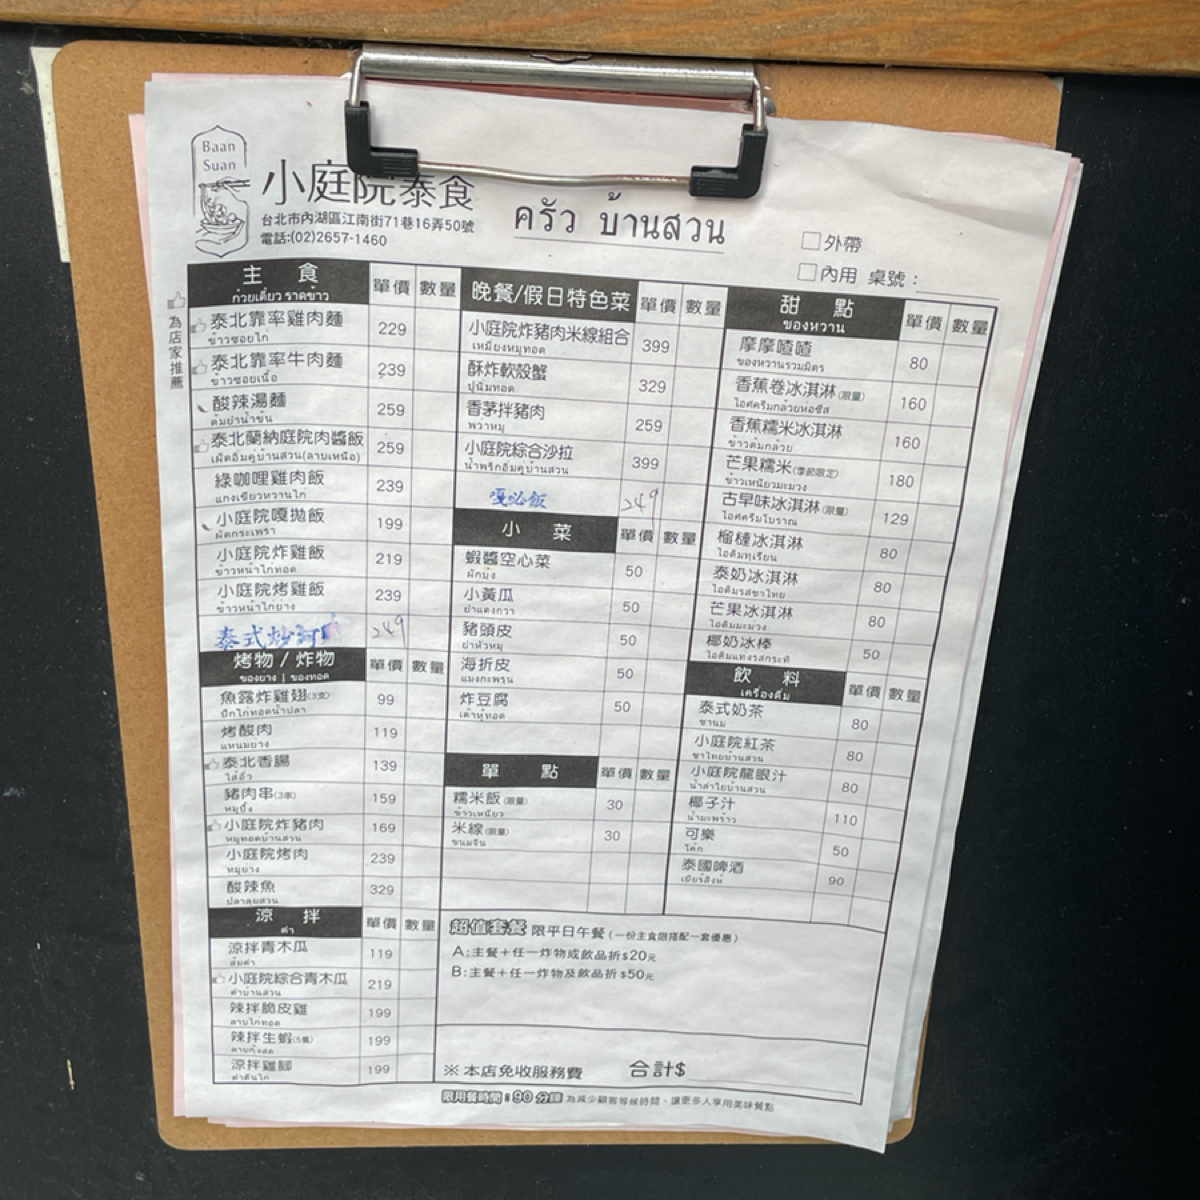 Baan
Suan
小庭院泰食
台北市內湖區江南街71巷16弄50號
電話:(02)2657-1460
ครัว บ้านสวน
□外帶
□內用 桌號:
為店家推薦
主食 單價 數量
ก๋วยเตี๋ยว ราดข้าว
泰北靠率雞肉麵 229
ข้าวซอยไก่
泰北靠率牛肉麵 239
ข้าวซอยเนื้อ
酸辣湯麵 259
ต้มยำน้ำข้น
泰北蘭納庭院肉醬飯 259
綠咖哩雞肉飯 239
แกงเขียวหวานไก่
小庭院嘎拋飯 199
ผัดกระเพรา
小庭院炸雞飯 219
ข้าวหน้าไก่ทอด
小庭院烤雞飯 239
ข้าวหน้าไก่ย่าง
泰式炒河 249
烤物 / 炸物 單價 數量
ของย่าง | ของทอด
魚露炸雞翅(3支) 99
ปีกไก่ทอดน้ำปลา
烤酸肉 119
แหนมย่าง
泰北香腸 139
ไส้อั่ว
豬肉串(3串) 159
หมูปิ้ง
小庭院炸豬肉 169
หมูทอดบ้านสวน
小庭院烤肉 239
หมูย่าง
酸辣魚 329
ปลาลุยสวน
涼拌 單價 數量
ตำ
涼拌青木瓜 119
ส้มตำ
小庭院綜合青木瓜 219
ตำบ้านสวน
辣拌脆皮雞 199
ลาบไก่ทอด
辣拌生蝦(5隻) 199
涼拌雞腳 199
ตำตีนไก่
晚餐/假日特色菜 單價 數量
小庭院炸豬肉米線組合 399
เหมี่ยงหมูทอด
酥炸軟殼蟹 329
ปูนิ่มทอด
香茅拌豬肉 259
พล่าหมู
小庭院綜合沙拉 399
嘎必飯 249
小菜 單價 數量
蝦醬空心菜 50
ผักบุ้ง
小黃瓜 50
ยำแตงกวา
豬頭皮 50
ยำหัวหมู
海折皮 50
แมงกะพรุน
炸豆腐 50
เต้าหู้ทอด
單點 單價 數量
糯米飯(限量) 30
ข้าวเหนียว
米線(限量) 30
ขนมจีน
甜點 單價 數量
ของหวาน
摩摩喳喳 80
ของหวานรวมมิตร
香蕉卷冰淇淋(限量) 160
ไอศครีมกล้วยห่อชีส
香蕉糯米冰淇淋 160
ข้าวต้มกล้วย
芒果糯米(季節限定) 180
ข้าวเหนียวมะม่วง
古早味冰淇淋(限量) 129
ไอศครีมโบราณ
榴槤冰淇淋 80
ไอติมทุเรียน
泰奶冰淇淋 80
ไอติมรสชาไทย
芒果冰淇淋 80
ไอติมมะม่วง
椰奶冰棒 50
ไอติมแท่งรสกะทิ
飲料 單價 數量
เครื่องดื่ม
泰式奶茶 80
ชานม
小庭院紅茶 80
ชาไทยบ้านสวน
小庭院龍眼汁 80
น้ำลำไยบ้านสวน
椰子汁 110
น้ำมะพร้าว
可樂 50
โค้ก
泰國啤酒 90
เบียร์สิงห์
超值套餐 限平日午餐(一份主食限搭配一套優惠)
A:主餐+任一炸物或飲品折$20元
B:主餐+任一炸物及飲品折$50元
※本店免收服務費 合計$
限用餐時間:90分鐘 為減少顧客等候時間,讓更多人享用美味餐點